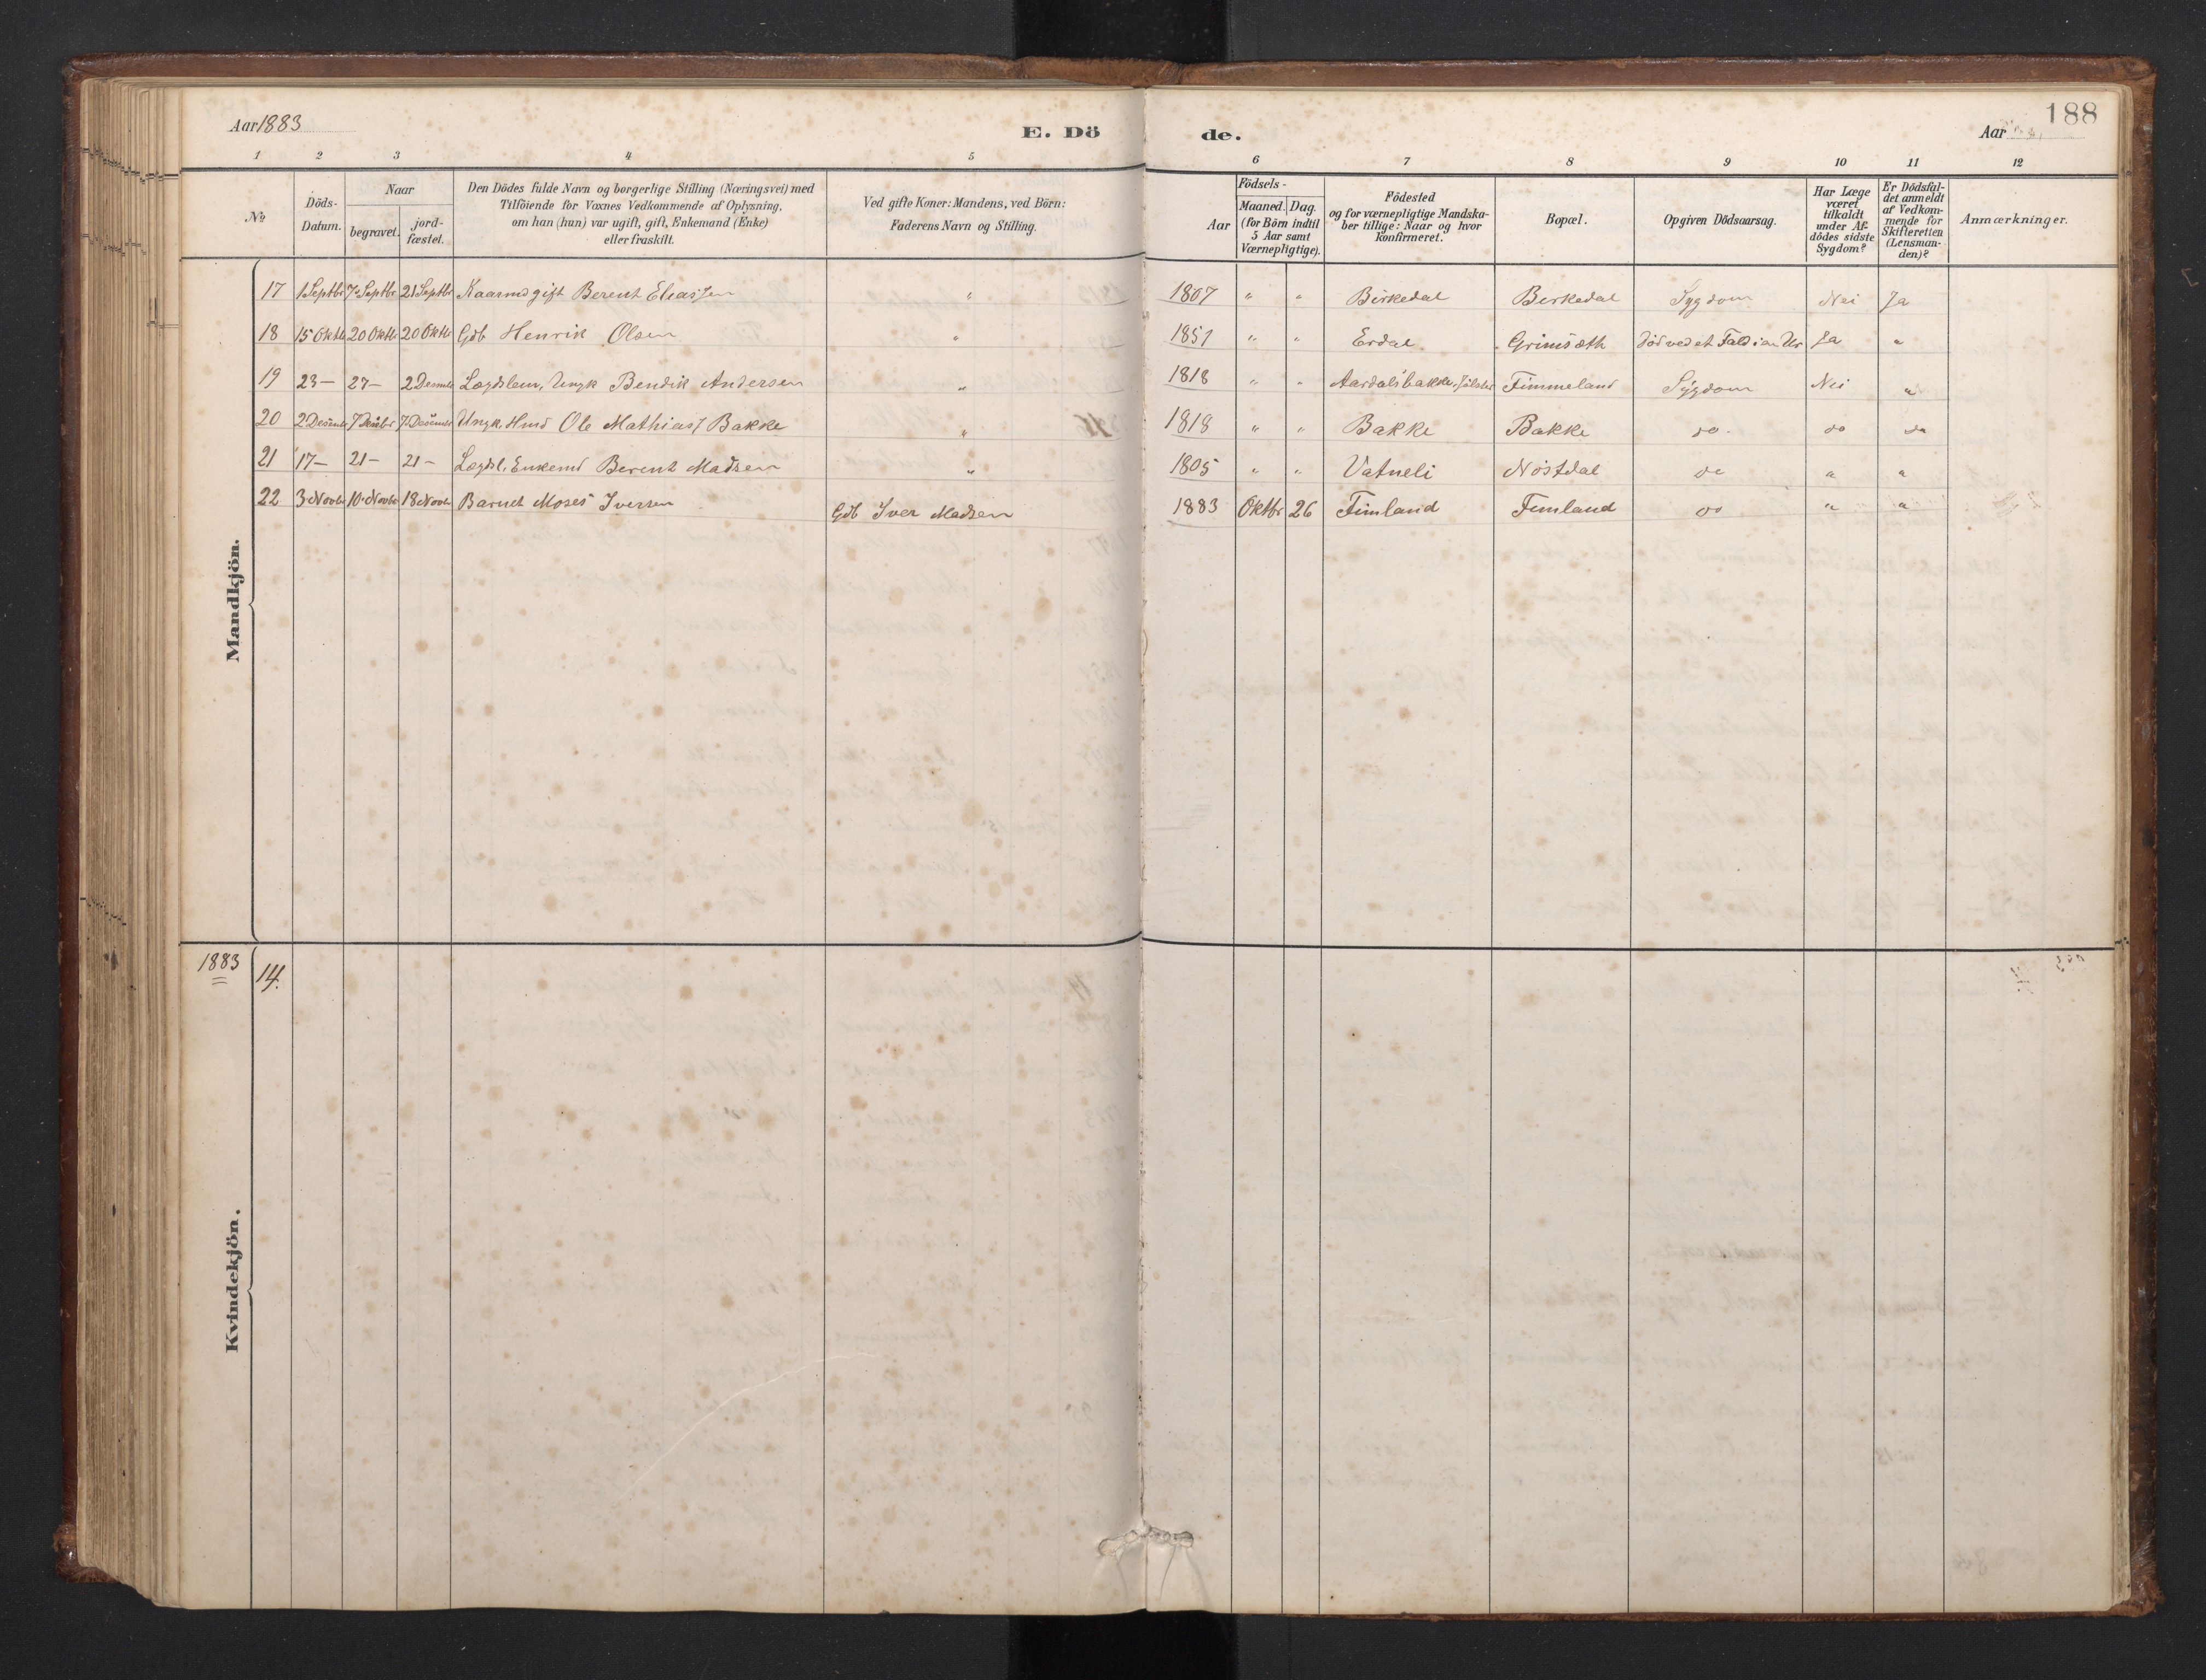 188
Aar 1883
E. Dö
de.
Aar
1 2 3 4 5 6 7 8 9 10 11 12
№
Döds-
Datum.
Naar
begravet.
jord-
fæstet.
Den Dödes fulde Navn og borgerlige Stilling (Næringsvei) med
Tilföiende for Voxnes Vedkommende af Oplysning,
om han (hun) var ugift, gift, Enkemand (Enke)
eller fraskilt.
Ved gifte Koner: Mandens, ved Börn:
Faderens Navn og Stilling.
Födsels-
Aar
Maaned. Dag.
(for Börn indtil
5 Aar samt
Værnepligtige).
Födested
og for værnepligtige Mandska-
ber tillige: Naar og hvor
konfirmeret.
Bopæl.
Opgiven Dödsaarsag.
Har Læge
været
tilkaldt
under Af-
dödes sidste
Sygdom?
Er Dödsfal-
det anmeldt
af Vedkom-
mende for
Skifteretten
(Lensman-
den)?
Anmærkninger.
Mandkjön.
17 1 Septbr 7 Septbr 21 Septbr Kaarmd gift Berent Eliassen " 1807 " " Birkedal Birkedal Sygdom Nei Ja
18 15 Oktb 20 Oktb 20 Oktb Gdb Henrik Olsen " 1851 " " Erdal Grimsæth död ved et Fald i en Ur Ja "
19 23 — 27 — 2 Decmb Lægdslem, Ungk Bendik Andersen " 1818 " " Aardalsbakke, Jölster Fimmeland Sygdom Nei "
20 2 Decmb 7 Decmbr 7 Decmb Ungk. Hmd Ole Mathias J Bakke " 1818 " " Bakke Bakke do. do do
21 17 — 21 — 21 — Lægdsl. Enkemd Berent Madsen " 1805 " " Vatneli Nöstdal do " "
22 3 Novbr 10 Novbr 18 Novbr Barnet Moses Iversen Gdb Iver Madsen 1883 Oktbr 26 Fimland Fimland do " "
1883
14.
Kvindekjön.